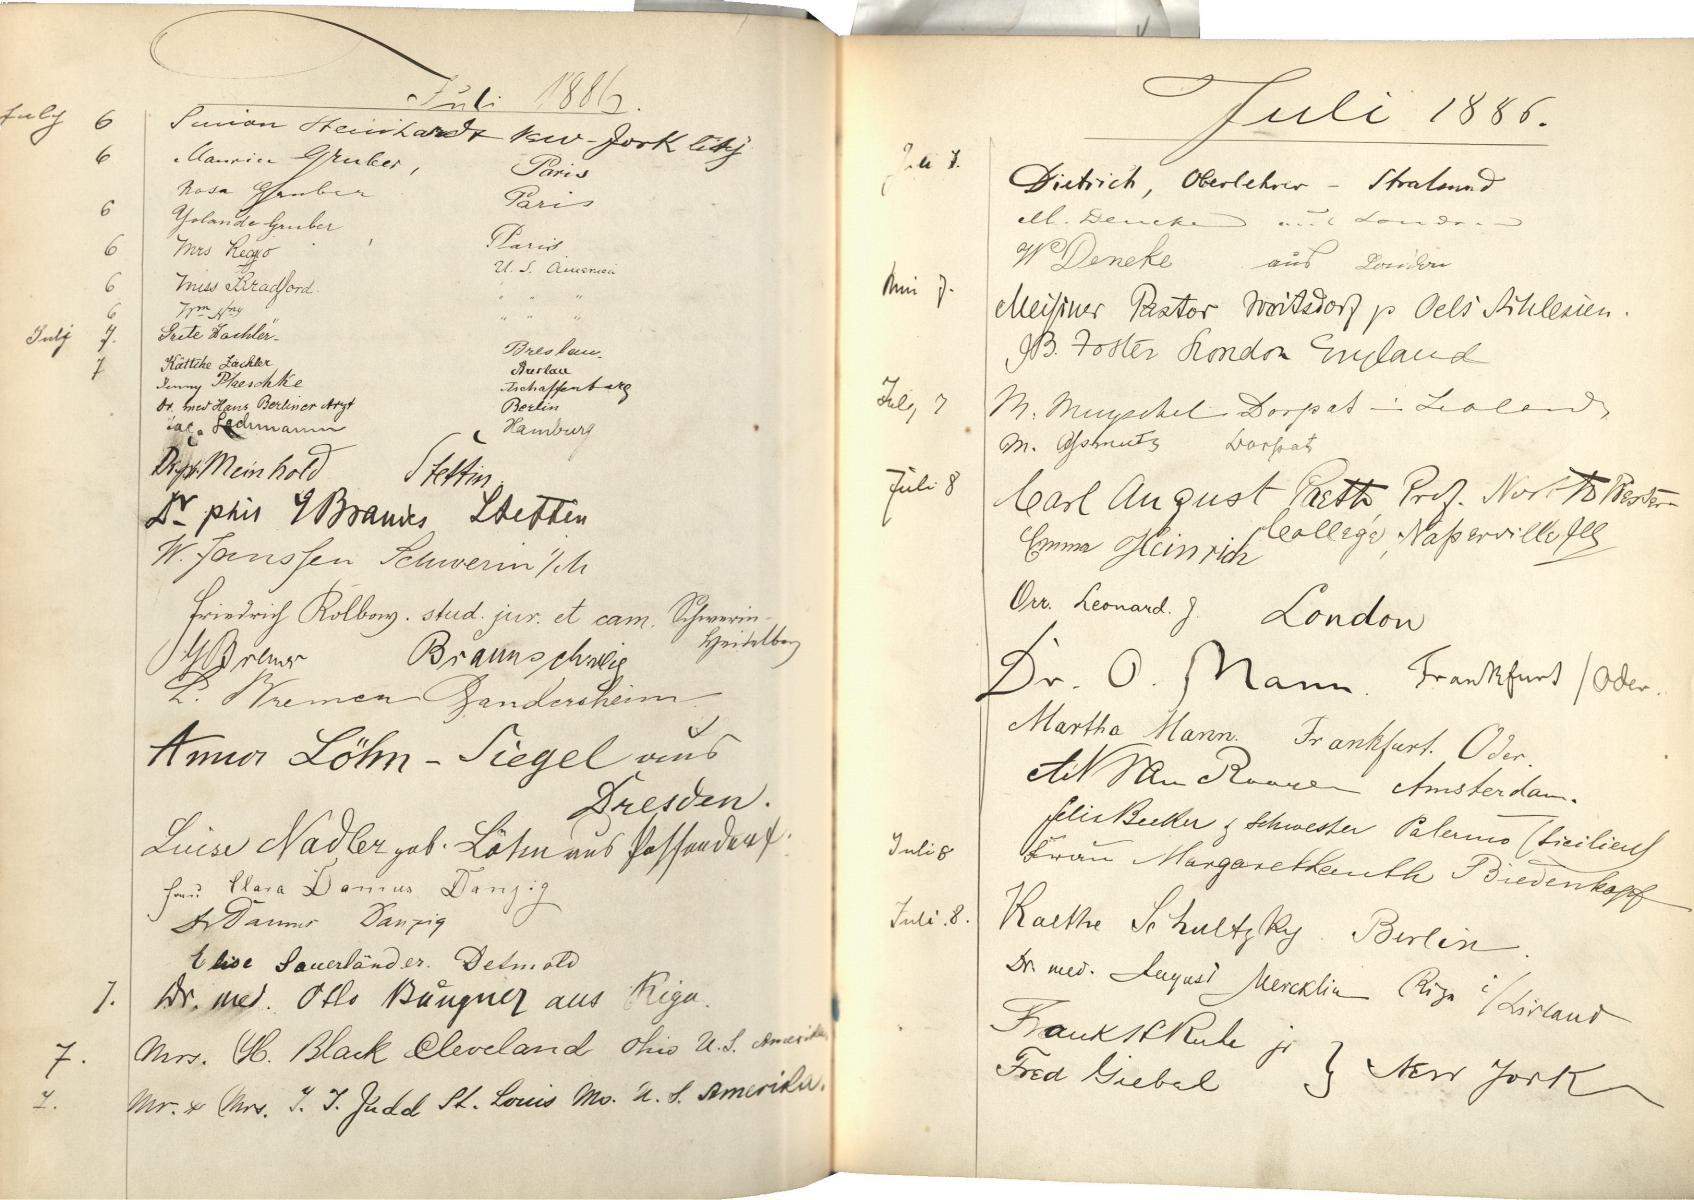 Juli 1886.
July 6 Simon Steinhardt New-York City
6 Maurice Gruber, Paris
Rosa Gruber Paris
6 Yolande Gruber Paris
6 Mrs U. S. America
6 Miss Bradford. " " "
6 Wm " " "
July 7. Grete Lachler. Breslau.
7 Käthe Lachler Breslau
Jenny Plaeschke Aschaffenburg
Dr. med Hans Berliner Arzt Berlin
Lachmann Hamburg
Meinhold Stettin
Dr phil G Brandes Stettin
W. Janssen Schwerin i/M
Friedrich Kolbow. stud. jur. et cam. Schwerin-
Heidelberg
Bremer Braunschweig
L. Bremer Gandersheim
Anna Löhn-Siegel aus
Dresden.
Luise Nadler geb. Löhn aus Possendorf.
Frau Clara Damus Danzig
Dr Damus Danzig
Elise Sauerländer. Detmold
7. Dr. med. Otto Büngner aus Riga.
7. Mrs. H. Black Cleveland Ohio U.S. Amerika
7. Mr. & Mrs. T. T. Judd St. Louis Mo. U. S. Amerika.
Juli 1886.
Juli 7. Dietrich, Oberlehrer - Stralsund
M. Deneke aus London
W Deneke aus London
7. Meißner Pastor Woitsdorf p Oels Schlesien.
J.B. Foster London England
July 7 M. Dorpat in Livland
M. Dorpat
Juli 8 Carl August Paeth, Prof. North Western
College, Naperville Ills
Emma Heinrich
Orr. Leonard. J. London
Dr. O. Mann. Frankfurt / Oder.
Martha Mann. Frankfurt. Oder.
Van Amsterdam.
Felix Becker & Schwester Palermo (Sicilien)
Juli 8 Margarethe Biedenkopf
Juli. 8. Kaethe Schultzky. Berlin.
Dr. med. August Mercklin Riga i/Livland
Frank H Ruhe jr
Fred Giebel } New York